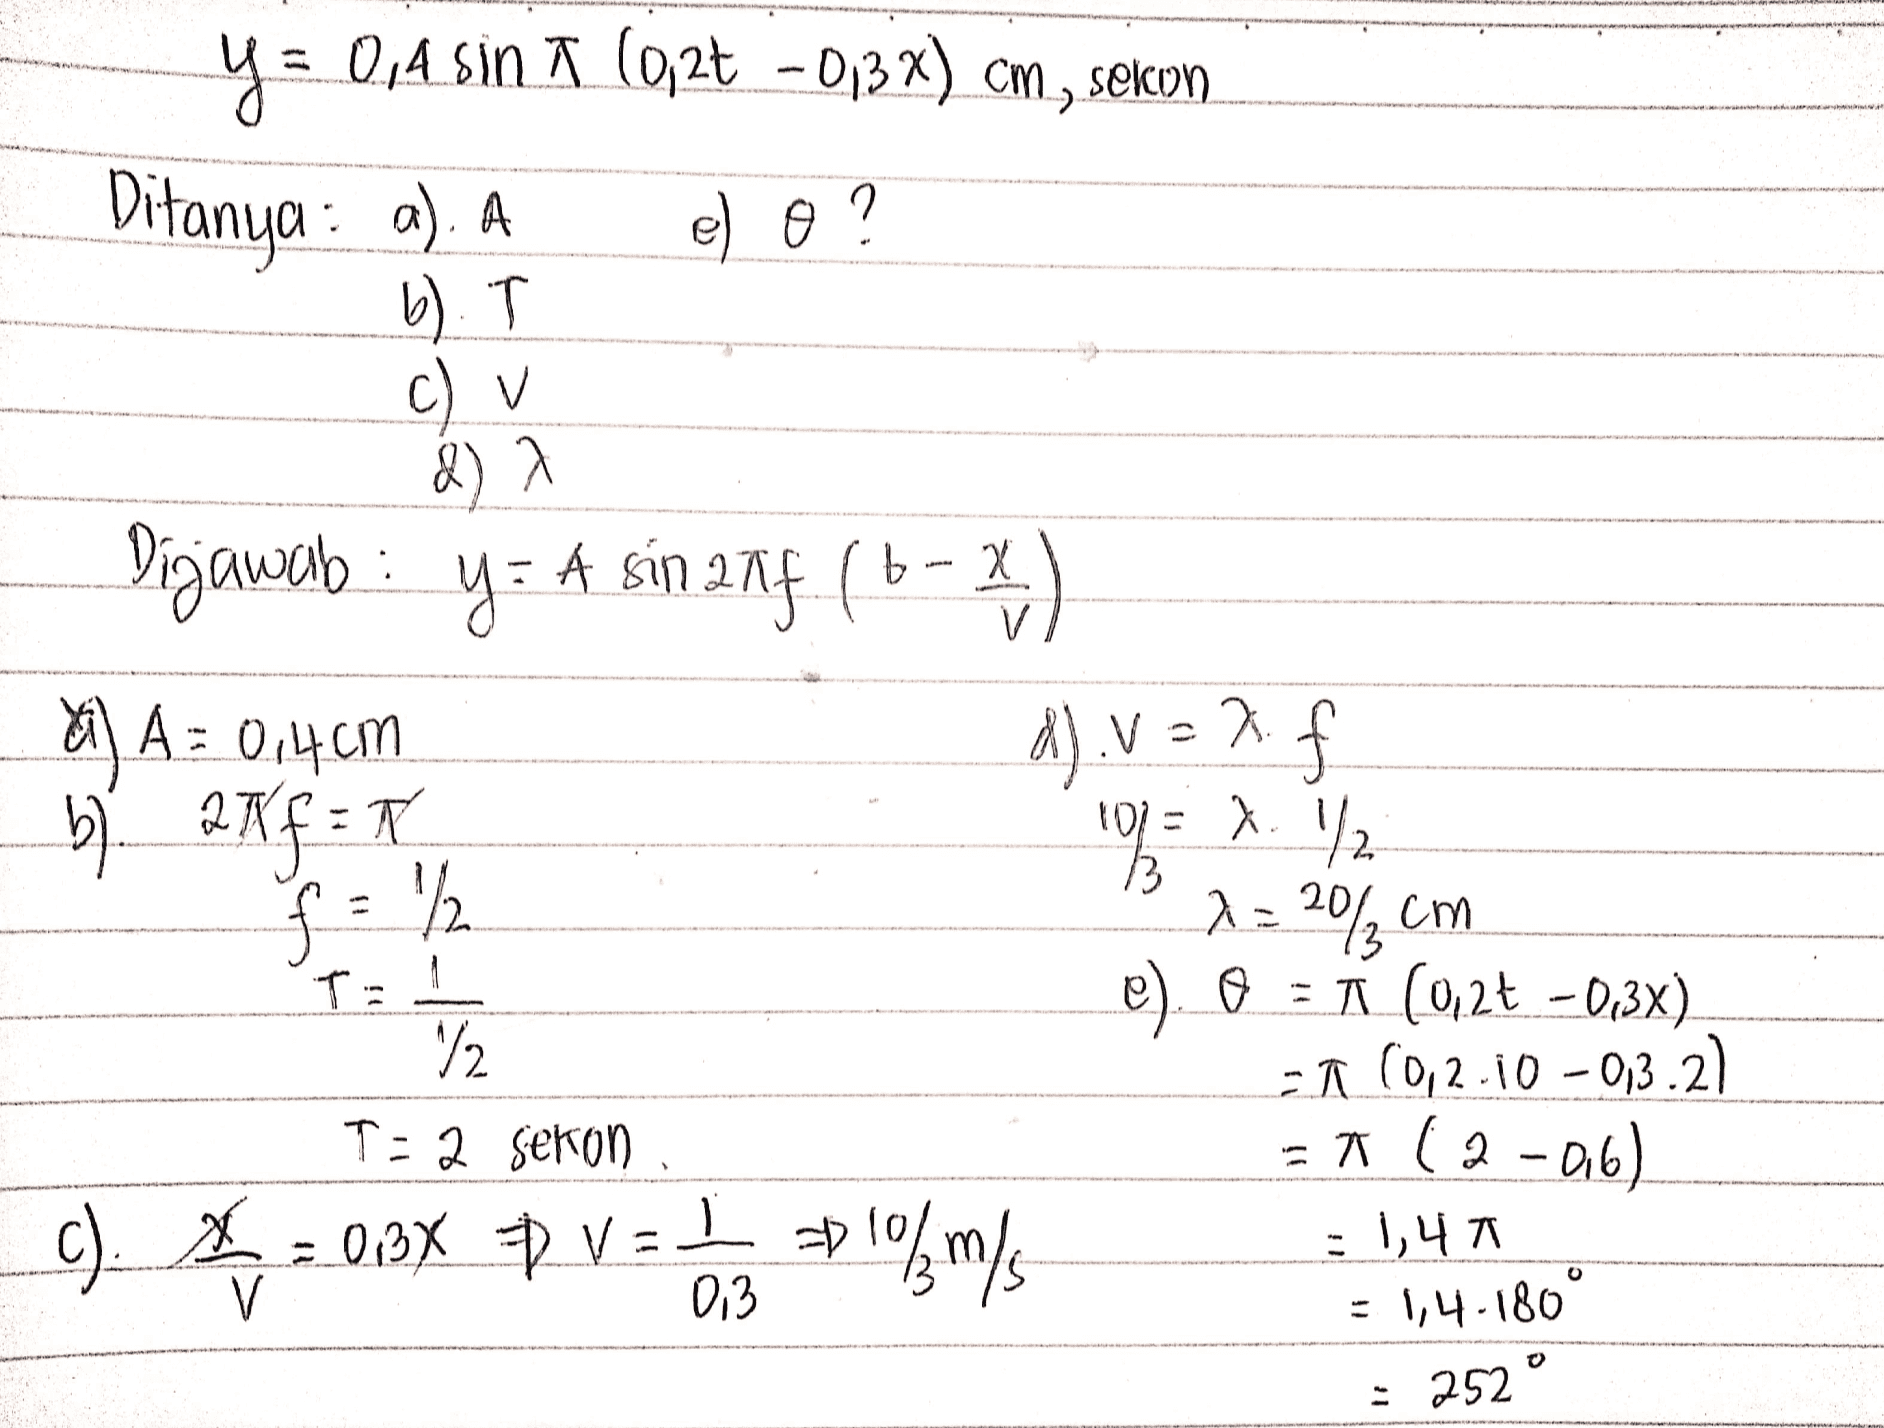 y = 0,4 sin π (0,2t - 0,3x) cm, sekon
Ditanya: a). A e) θ ?
b). T
c) v
d) λ
Dijawab : y = A sin 2πf (t - x/v)
a) A = 0,4 cm
b). 2πf = π
f = 1/2
T = 1/(1/2)
T = 2 sekon.
c). x/v = 0,3x ⇒ v = 1/0,3 ⇒ 10/3 m/s
d). v = λ. f
10/3 = λ. 1/2
λ = 20/3 cm
e). θ = π (0,2t - 0,3x)
= π (0,2.10 - 0,3.2)
= π (2 - 0,6)
= 1,4 π
= 1,4.180°
= 252°